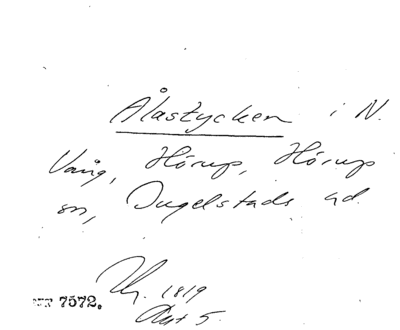 Ålastycken i N.
Vång, Hörup, Hörup
sn, Ingelstads hd.
1819
Akt 5.
7572.